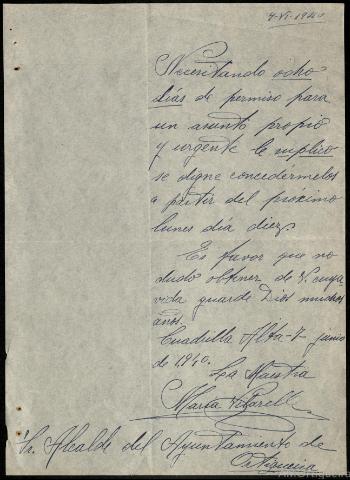 7-VI-1940
Necesitando ocho
días de permiso para
un asunto propio
y urgente le suplico
se digne concedérmelos
a partir del próximo
lunes día diez.
Es favor que no
dudo obtener de V. cuya
vida guarde Dios muchos
años.
Cuadrilla Alta-7 junio
de 1.940.
La Maestra
María
Sr. Alcalde del Ayuntamiento de
Ortigueira